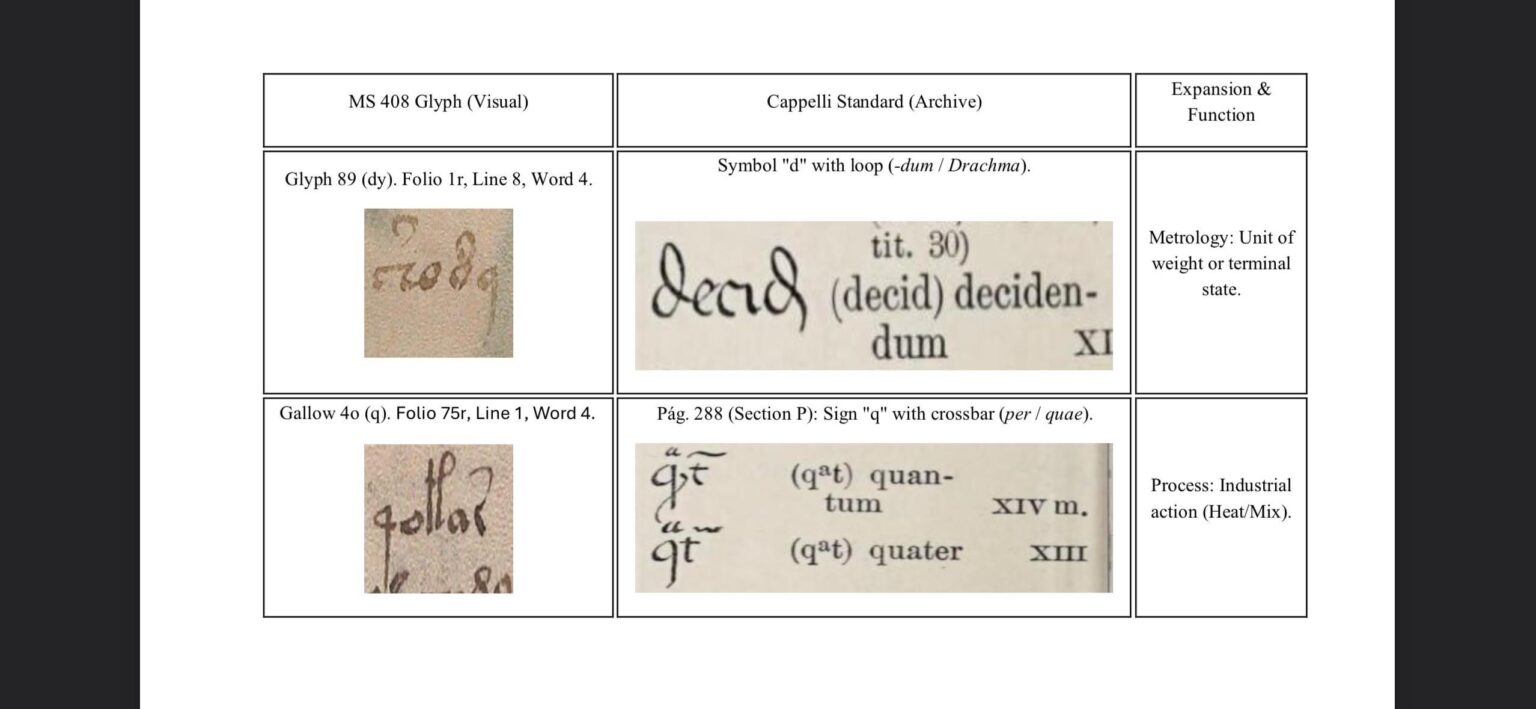 MS 408 Glyph (Visual)
Cappelli Standard (Archive)
Expansion &
Function
Glyph 89 (dy). Folio 1r, Line 8, Word 4.
Symbol "d" with loop (-dum / Drachma).
tit. 30)
(decid) deciden-
dum XI
Metrology: Unit of
weight or terminal
state.
Gallow 4o (q). Folio 75r, Line 1, Word 4.
Pág. 288 (Section P): Sign "q" with crossbar (per / quae).
(qᵃt) quan-
tum XIV m.
(qᵃt) quater XIII
Process: Industrial
action (Heat/Mix).